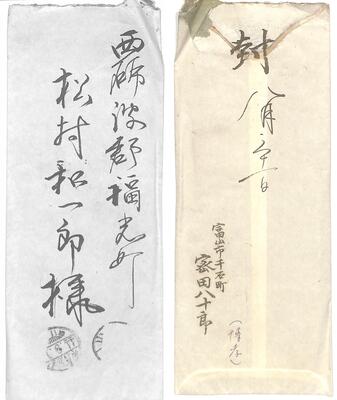 西礪波郡福光町
松村和一郎様
封
八月三十一日
富山市千石町
密田八十郎